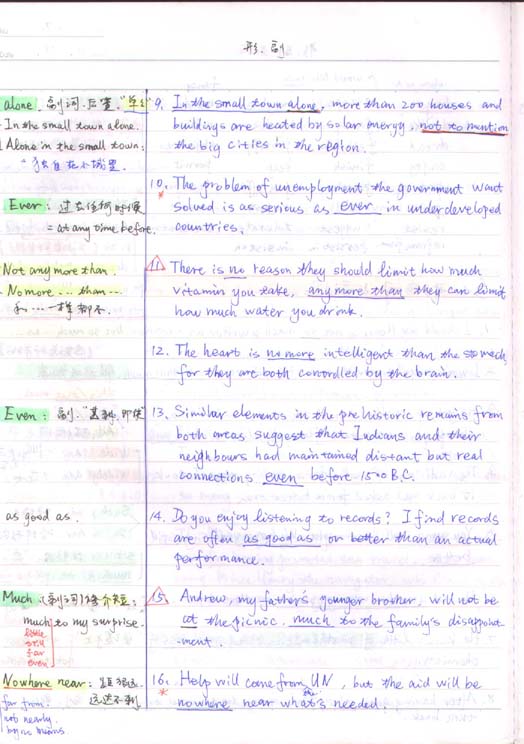 形. 副
alone. 副词. 后置. "单独"
In the small town alone.
Alone in the small town:
"独自在小城里.
9. In the small town alone, more than 200 houses and
buildings are heated by solar energy, not to mention
the big cities in the region.
Ever: 过去任何时候
= at any time before.
10. The problem of unemployment the government want
* solved is as serious as ever in underdeveloped
countries.
Not any more than.
No more ... than ...
和...一样都不.
11. There is no reason they should limit how much
vitamin you take, any more than they can limit
how much water you drink.
12. The heart is no more intelligent than the stomach,
for they are both controlled by the brain.
Even: 副. "甚和, 即使"
13. Similar elements in the prehistoric remains from
both areas suggest that Indians and their
neighbours had maintained distant but real
connections even before 1500 B.C.
as good as.
14. Do you enjoy listening to records? I find records
are often as good as or better than an actual
performance.
Much (副词)修介短:
much to my surprise.
little
still
far
even
15. Andrew, my father's younger brother, will not be
at the picnic. much to the family's disappoint
-ment.
Nowhere near:
远达不到
far from.
not nearly.
by no means.
16. Help will come from UN, but the aid will be
* nowhere near what's needed.